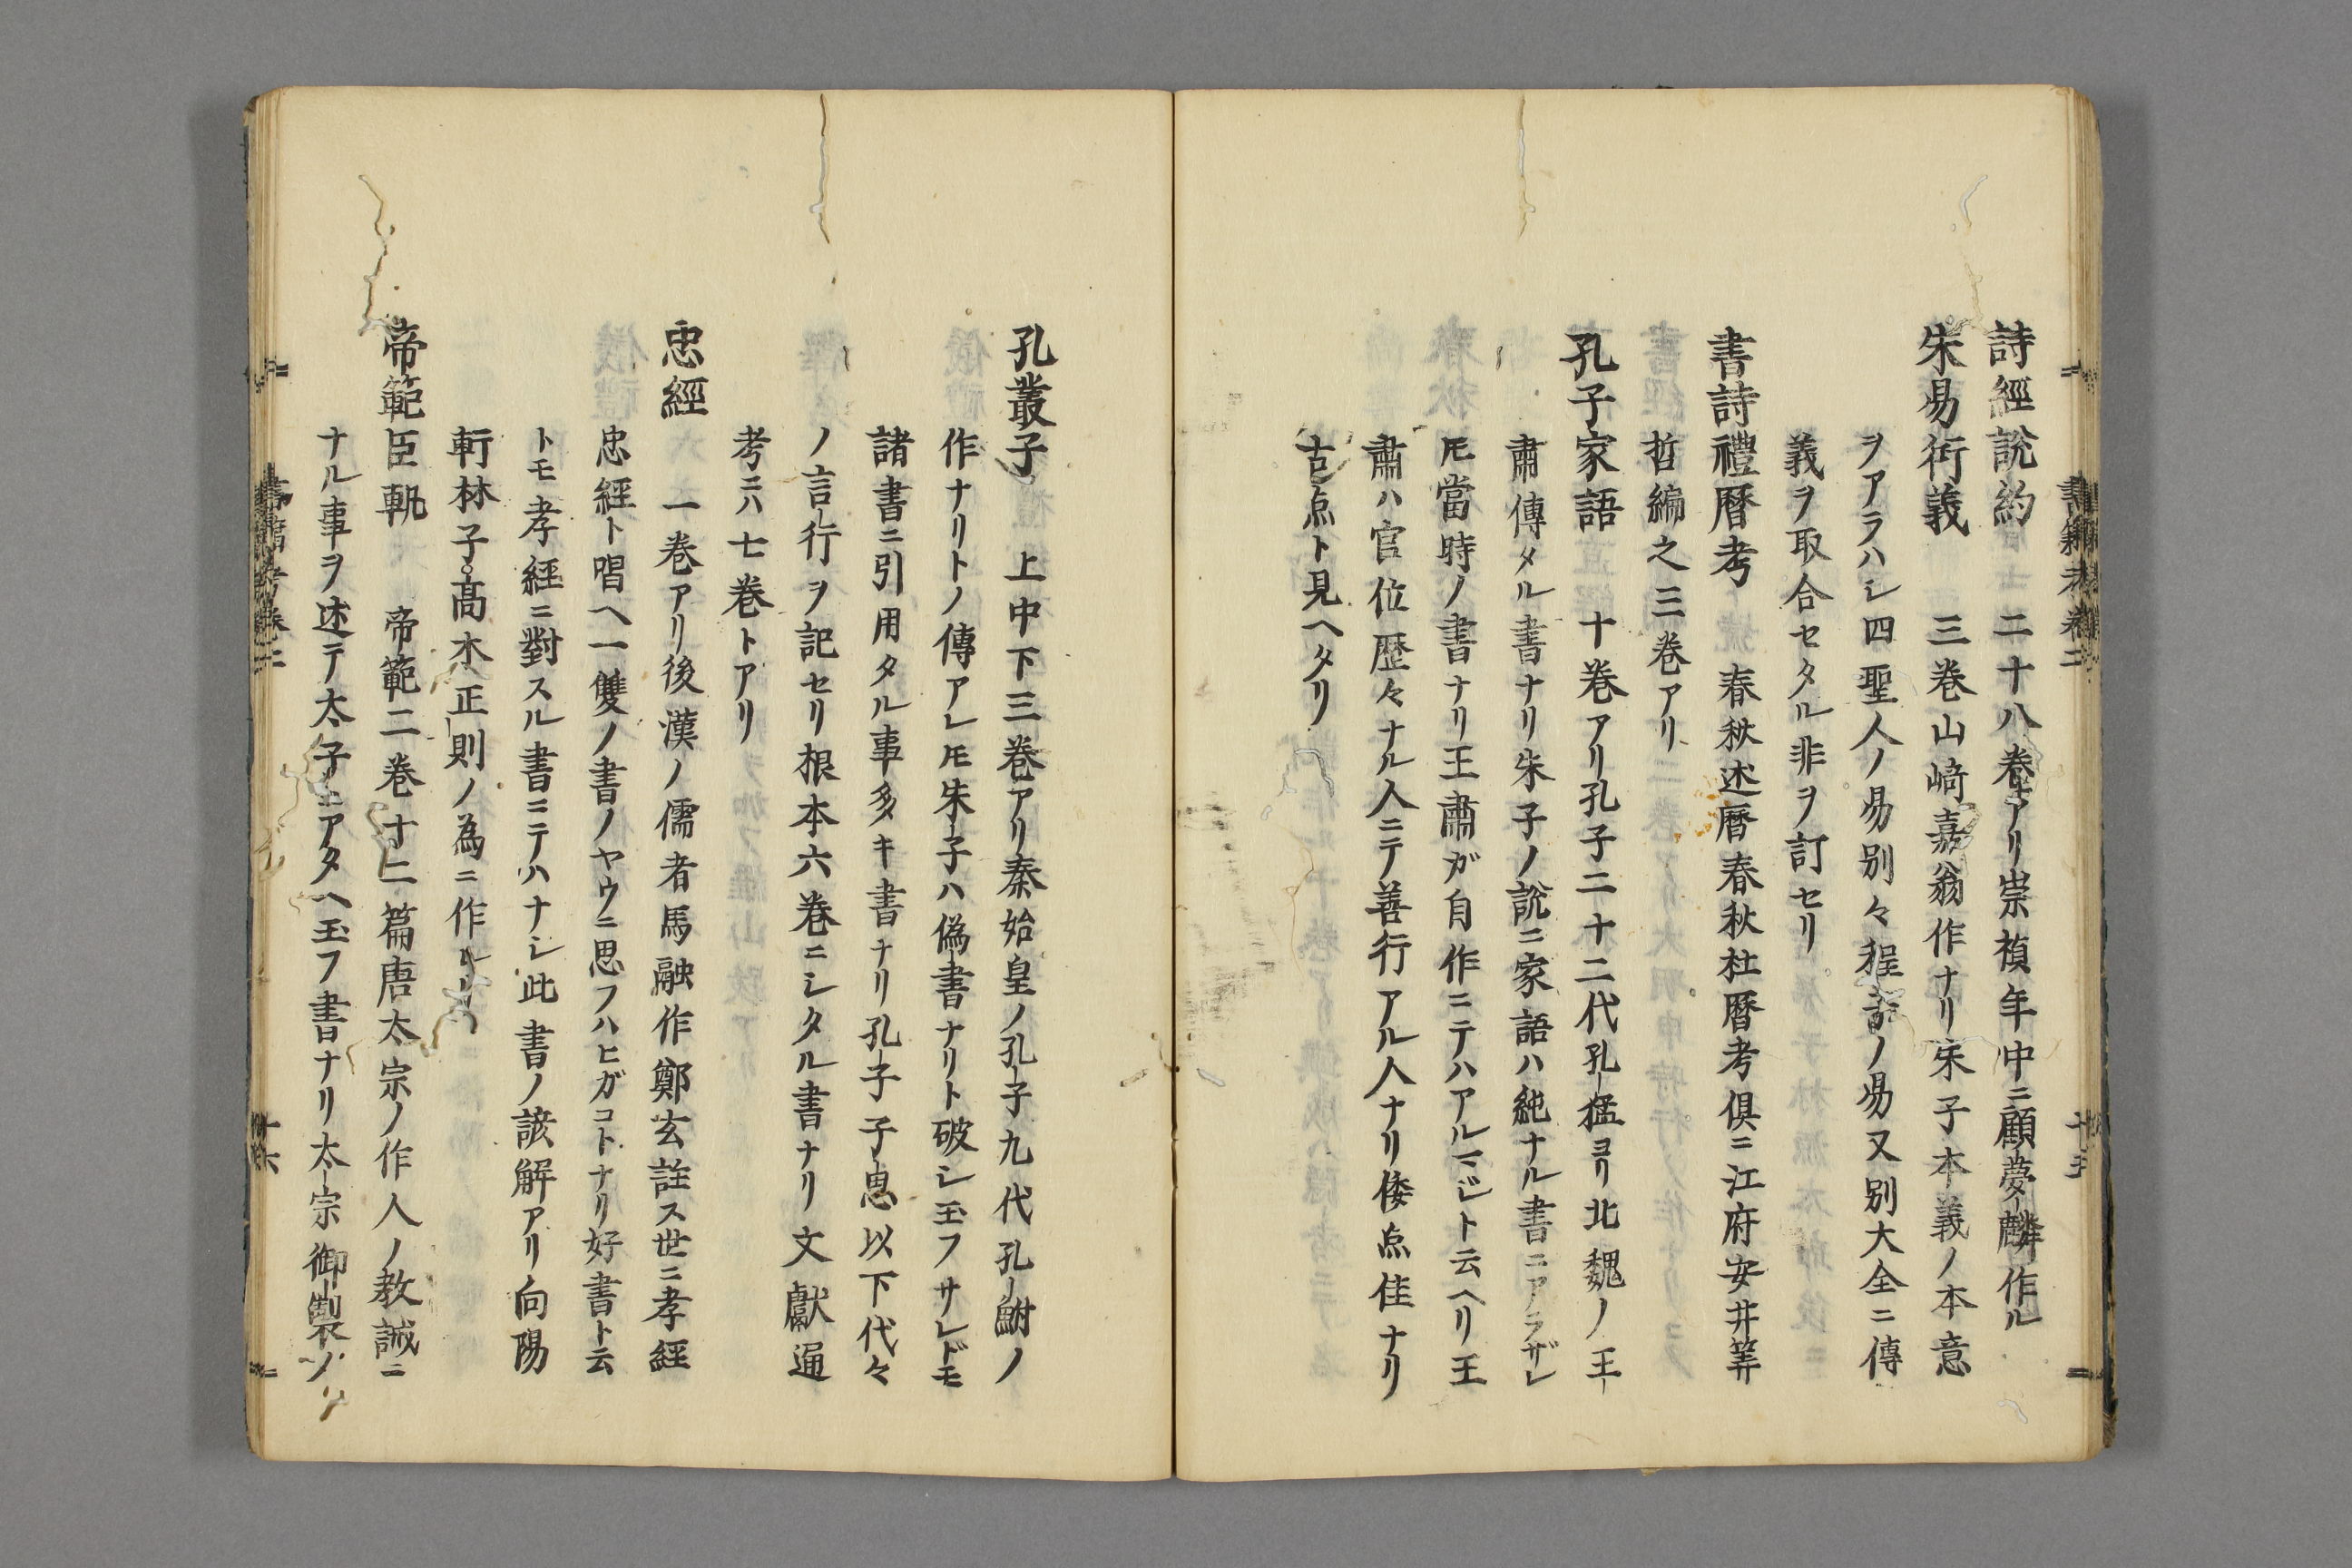 詩經說約　二十八巻アリ崇禎年中ニ顧夢麟作ル
朱易衍義　三巻山﨑嘉翁作ナリ朱子本義ノ本意
ヲアラハシ四聖人ノ易別々程ノ易又別大全ニ傳
義ヲ取合セタル非ヲ訂セリ
書詩禮暦考　春秋述暦春秋杜暦考俱ニ江府安井筭
哲編之三巻アリ
孔子家語　十巻アリ孔子二十二代孔猛ヨリ北魏ノ王
肅傳タル書ナリ朱子ノ說ニ家語ハ純ナル書ニアラザレ
𪜈當時ノ書ナリ王肅ガ自作ニテハアルマジト云ヘリ王
肅ハ官位歴々ナル人ニテ善行アル人ナリ倭点佳ナリ
古点ト見ヘタリ
孔叢子　上中下三巻アリ秦始皇ノ孔子九代孔鮒ノ
作ナリトノ傳アレ𪜈朱子ハ偽書ナリト破シ玉フサレドモ
諸書ニ引用タル事多キ書ナリ孔子子思以下代々
ノ言行ヲ記セリ根本六巻ニシタル書ナリ文獻通
考ニハ七巻トアリ
忠經　一巻アリ後漢ノ儒者馬融作鄭玄註ス世ニ孝經
忠經ト唱ヘ一雙ノ書ノヤウニ思フハヒガコトナリ好書ト云
トモ孝經ニ對スル書ニテハナシ此書ノ諺解アリ向陽
軒林子髙木正則ノ為ニ作レリ
帝範臣軌　帝範二巻十二篇唐太宗ノ作人ノ教誡ニ
ナル事ヲ述テ太子ニアタヘ玉フ書ナリ太宗御製ノ
書籍考巻二　十六